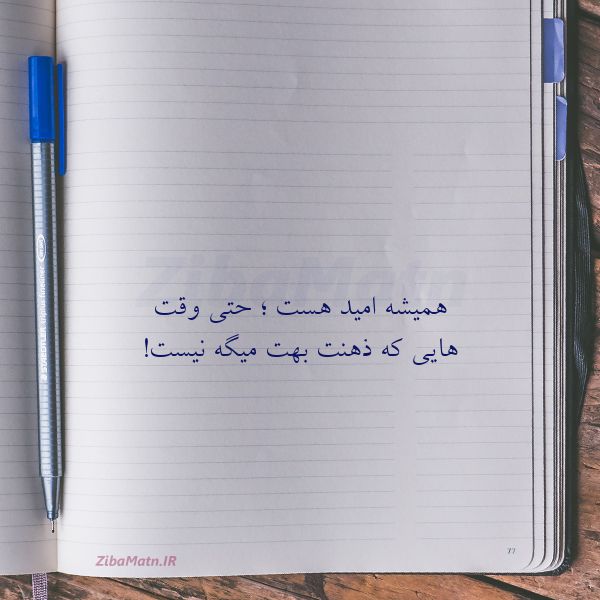 ZibaMatn
همیشه امید هست ؛ حتی وقت
هایی که ذهنت بهت میگه نیست!
STAEDTLER triplus fineliner
ZibaMatn.IR
77